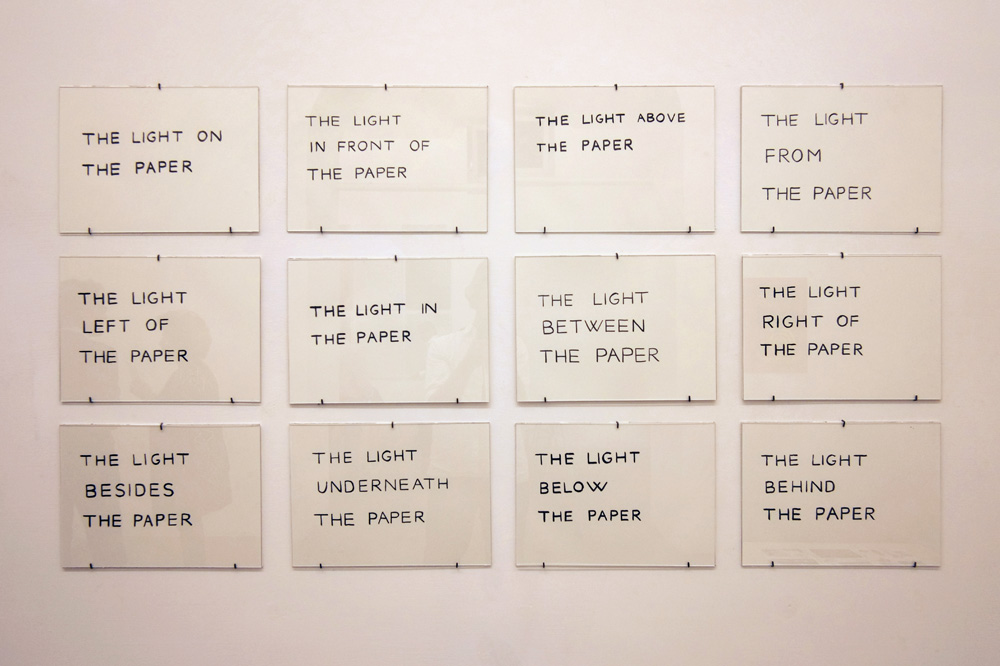 THE LIGHT ON
THE PAPER
THE LIGHT
IN FRONT OF
THE PAPER
THE LIGHT ABOVE
THE PAPER
THE LIGHT
FROM
THE PAPER
THE LIGHT
LEFT OF
THE PAPER
THE LIGHT IN
THE PAPER
THE LIGHT
BETWEEN
THE PAPER
THE LIGHT
RIGHT OF
THE PAPER
THE LIGHT
BESIDES
THE PAPER
THE LIGHT
UNDERNEATH
THE PAPER
THE LIGHT
BELOW
THE PAPER
THE LIGHT
BEHIND
THE PAPER